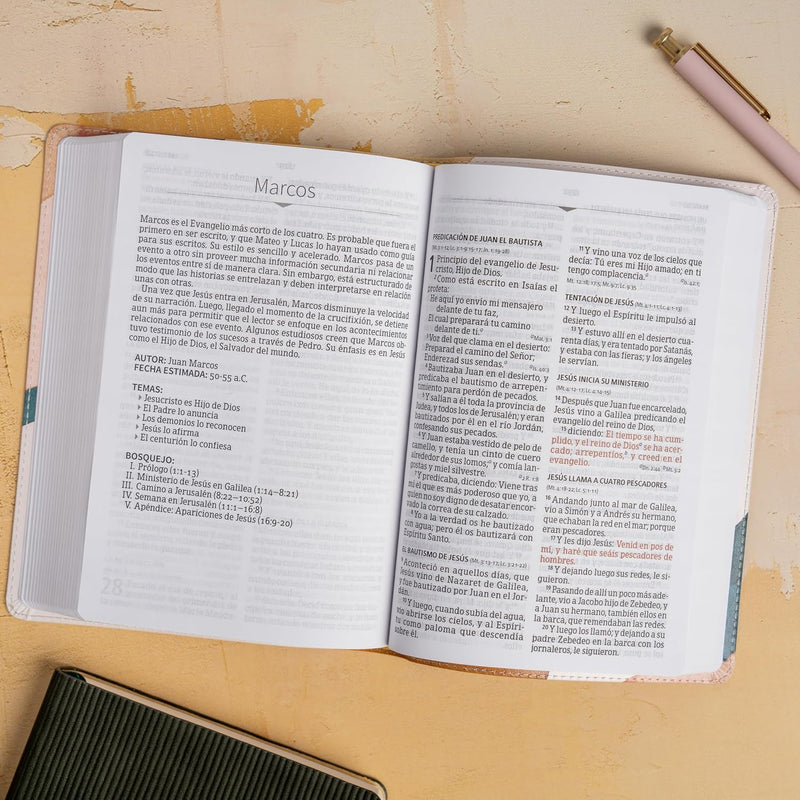 Marcos
Marcos es el Evangelio más corto de los cuatro. Es probable que fuera el
primero en ser escrito, y que Mateo y Lucas lo hayan usado como guía
para sus escritos. Su estilo es sencillo y acelerado. Marcos pasa de un
evento a otro sin proveer mucha información secundaria ni relacionar
los eventos entre sí de manera clara. Sin embargo, está estructurado de
modo que las historias se entrelazan y deben interpretarse en relación
unas con otras.
Una vez que Jesús entra en Jerusalén, Marcos disminuye la velocidad
de su narración. Luego, llegado el momento de la crucifixión, se detiene
aun más para permitir que el lector se enfoque en los acontecimientos
relacionados con ese evento. Algunos estudiosos creen que Marcos ob-
tuvo testimonio de los sucesos a través de Pedro. Su énfasis es en Jesús
como el Hijo de Dios, el Salvador del mundo.
AUTOR: Juan Marcos
FECHA ESTIMADA: 50-55 a.C.
TEMAS:
Jesucristo es Hijo de Dios
El Padre lo anuncia
Los demonios lo reconocen
Jesús lo afirma
El centurión lo confiesa
BOSQUEJO:
I. Prólogo (1:1-13)
II. Ministerio de Jesús en Galilea (1:14–8:21)
III. Camino a Jerusalén (8:22–10:52)
IV. Semana en Jerusalén (11:1–16:8)
V. Apéndice: Apariciones de Jesús (16:9-20)
28
PREDICACIÓN DE JUAN EL BAUTISTA
1 Principio del evangelio de Jesu-
cristo, Hijo de Dios.
2 Como está escrito en Isaías el
profeta:
He aquí yo envío mi mensajero
delante de tu faz,
El cual preparará tu camino
delante de ti.
3 Voz del que clama en el desierto:
Preparad el camino del Señor;
Enderezad sus sendas.
4 Bautizaba Juan en el desierto, y
predicaba el bautismo de arrepen-
timiento para perdón de pecados.
5 Y salían a él toda la provincia de
Judea, y todos los de Jerusalén; y eran
bautizados por él en el río Jordán,
confesando sus pecados.
6 Y Juan estaba vestido de pelo de
camello, y tenía un cinto de cuero
alrededor de sus lomos; y comía lan-
gostas y miel silvestre.
7 Y predicaba, diciendo: Viene tras
mí el que es más poderoso que yo, a
quien no soy digno de desatar encor-
vado la correa de su calzado.
8 Yo a la verdad os he bautizado
con agua; pero él os bautizará con
Espíritu Santo.
EL BAUTISMO DE JESÚS (Mt. 3:13-17; Lc. 3:21-22)
9 Aconteció en aquellos días, que
Jesús vino de Nazaret de Galilea,
y fue bautizado por Juan en el Jor-
dán.
10 Y luego, cuando subía del agua,
vio abrirse los cielos, y al Espíri-
tu como paloma que descendía
sobre él.
11 Y vino una voz de los cielos que
decía: Tú eres mi Hijo amado; en ti
tengo complacencia.
Mt. 12:18; 17:5; Mr. 9:7; Lc. 9:35
TENTACIÓN DE JESÚS (Mt. 4:1-11; Lc. 4:1-13)
12 Y luego el Espíritu le impulsó al
desierto.
13 Y estuvo allí en el desierto cua-
renta días, y era tentado por Satanás,
y estaba con las fieras; y los ángeles
le servían.
JESÚS INICIA SU MINISTERIO
(Mt. 4:12-17; Lc. 4:14-15)
14 Después que Juan fue encarcelado,
Jesús vino a Galilea predicando el
evangelio del reino de Dios,
15 diciendo: El tiempo se ha cum-
plido, y el reino de Dios se ha acer-
cado; arrepentíos, y creed en el
evangelio.
JESÚS LLAMA A CUATRO PESCADORES
(Mt. 4:18-22; Lc. 5:1-11)
16 Andando junto al mar de Galilea,
vio a Simón y a Andrés su hermano,
que echaban la red en el mar; porque
eran pescadores.
17 Y les dijo Jesús: Venid en pos de
mí, y haré que seáis pescadores de
hombres.
18 Y dejando luego sus redes, le si-
guieron.
19 Pasando de allí un poco más ade-
lante, vio a Jacobo hijo de Zebedeo, y
a Juan su hermano, también ellos en
la barca, que remendaban las redes.
20 Y luego los llamó; y dejando a su
padre Zebedeo en la barca con los
jornaleros, le siguieron.